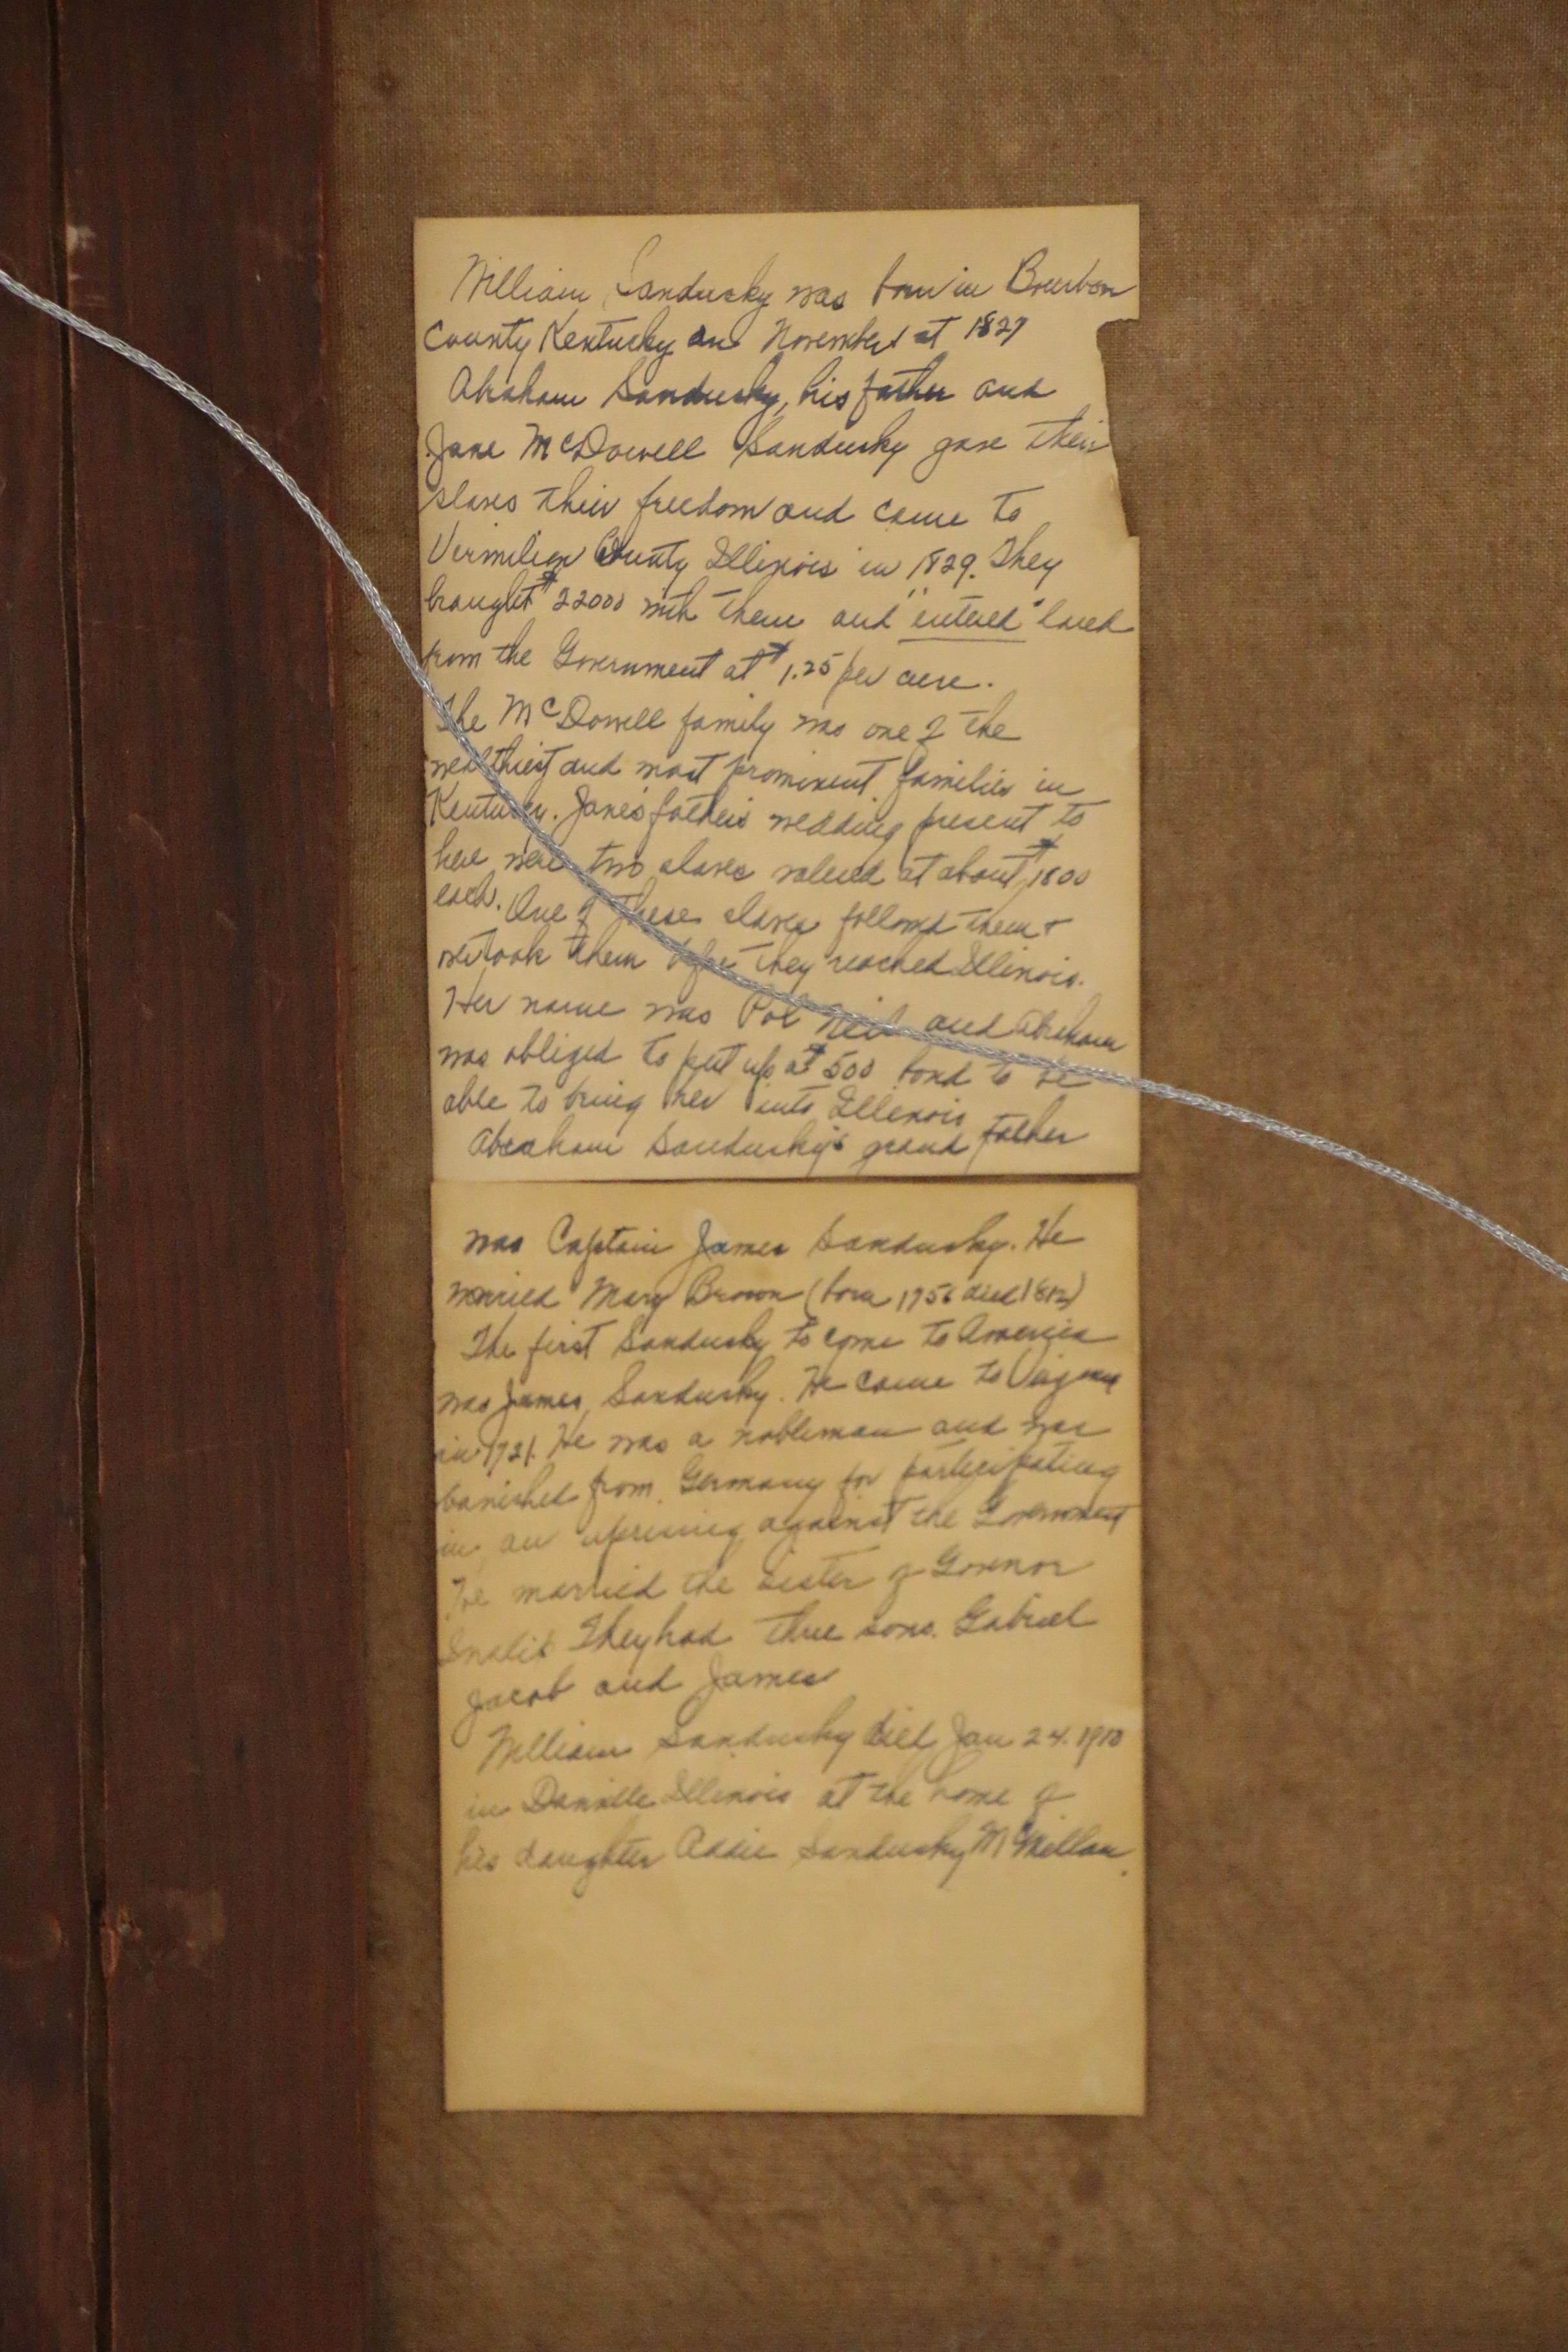 William Sandusky was born in Bourbon
County Kentucky on November 1st 1827
Abraham Sandusky, his father and
Jane McDowell Sandusky gave their
slaves their freedom and came to
Vermilion County Illinois in 1829. They
brought $22000 with them and "entered" land
from the Government at $1.25 per acre.
The McDowell family was one of the
wealthiest and most prominent families in
Kentucky. Jane's father's wedding present to
her were two slaves valued at about $1800
each. One of these slaves followed them +
overtook them before they reached Illinois.
Her name was and Abraham
was obliged to put up a $500 bond to be
able to bring her into Illinois
Abraham Sandusky's grand father
was Captain James Sandusky. He
married Mary Brown (born 1756 died 1812)
The first Sandusky to come to America
was James Sandusky. He came to Virginia
in 1721. He was a nobleman and was
banished from Germany for participating
in an uprising against the Government
He married the sister of Govenor
They had three sons. Gabriel
Jacob and James
William Sandusky died Jan 24. 1910
in Danville Illinois at the home of
his daughter Addie Sandusky McMillan.